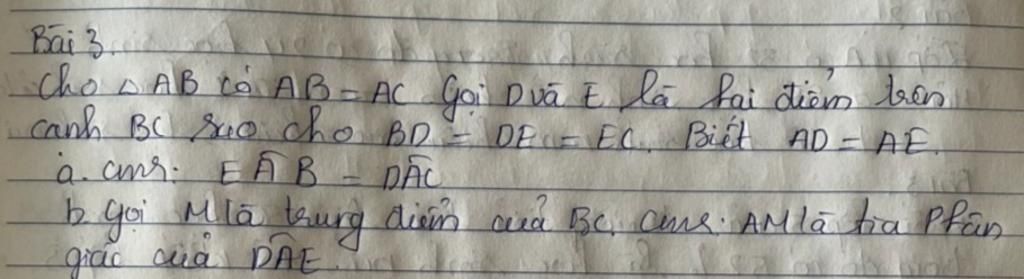 Bài 3.
Cho △ AB có AB = AC Gọi D và E là hai điểm trên
cạnh BC sao cho BD = DE = EC. Biết AD = AE.
a. cmr: EÂB = DÂC
b. gọi M là trung điểm của BC. cmr: AM là tia Phân
giác của DÂE.